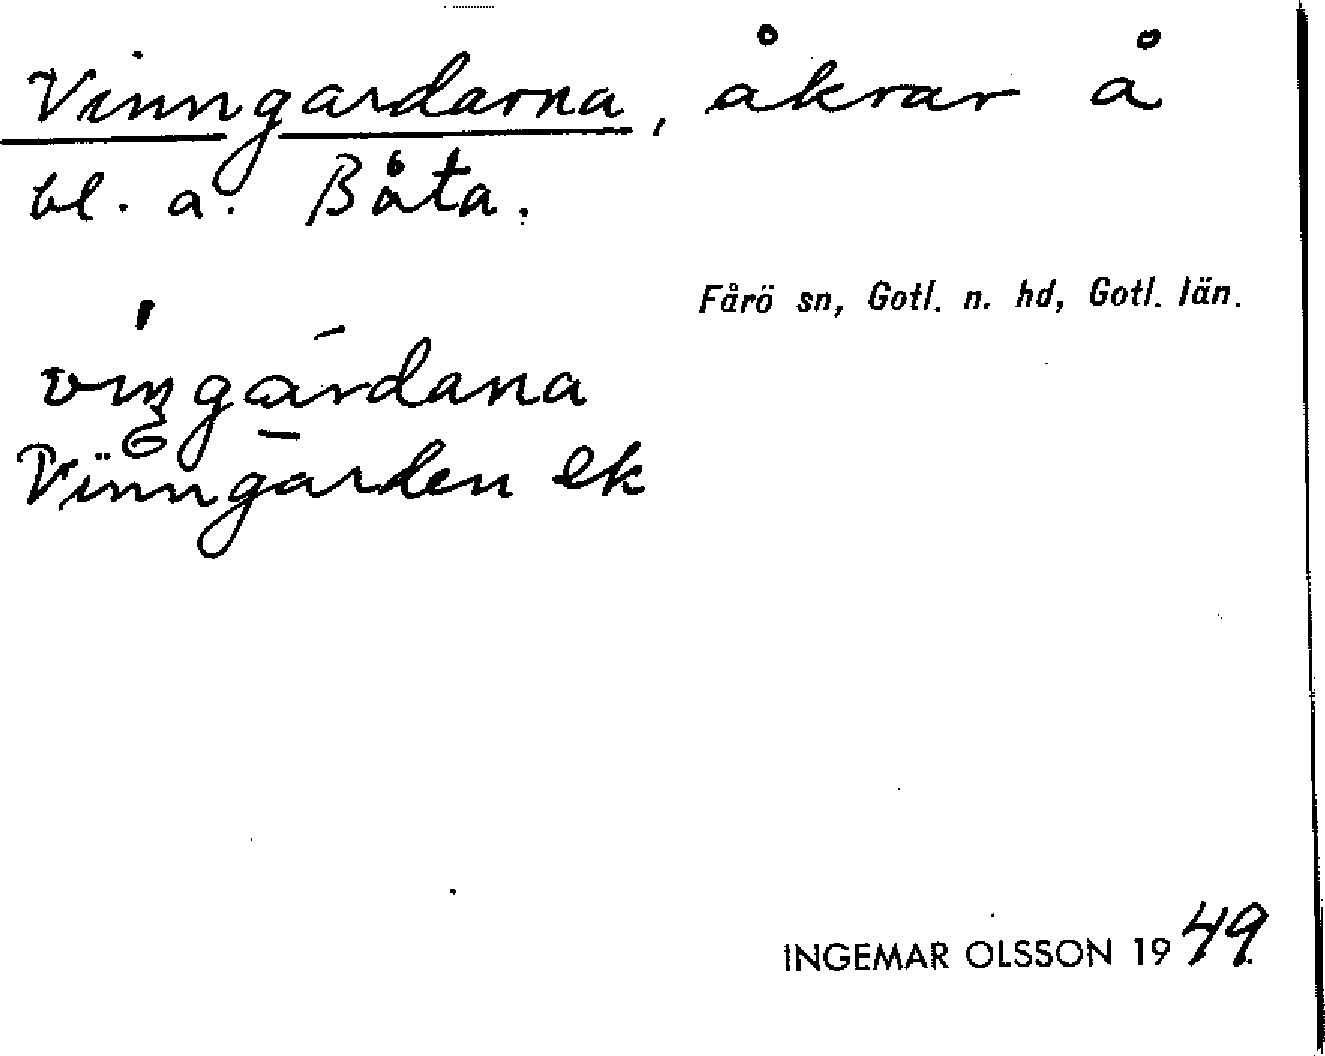 Vinngardarna, åkrar å
bl. a. Båta.
Fårö sn, Gotl. n. hd, Gotl. län.
vingārdana
Vinngarden ek
INGEMAR OLSSON 1949